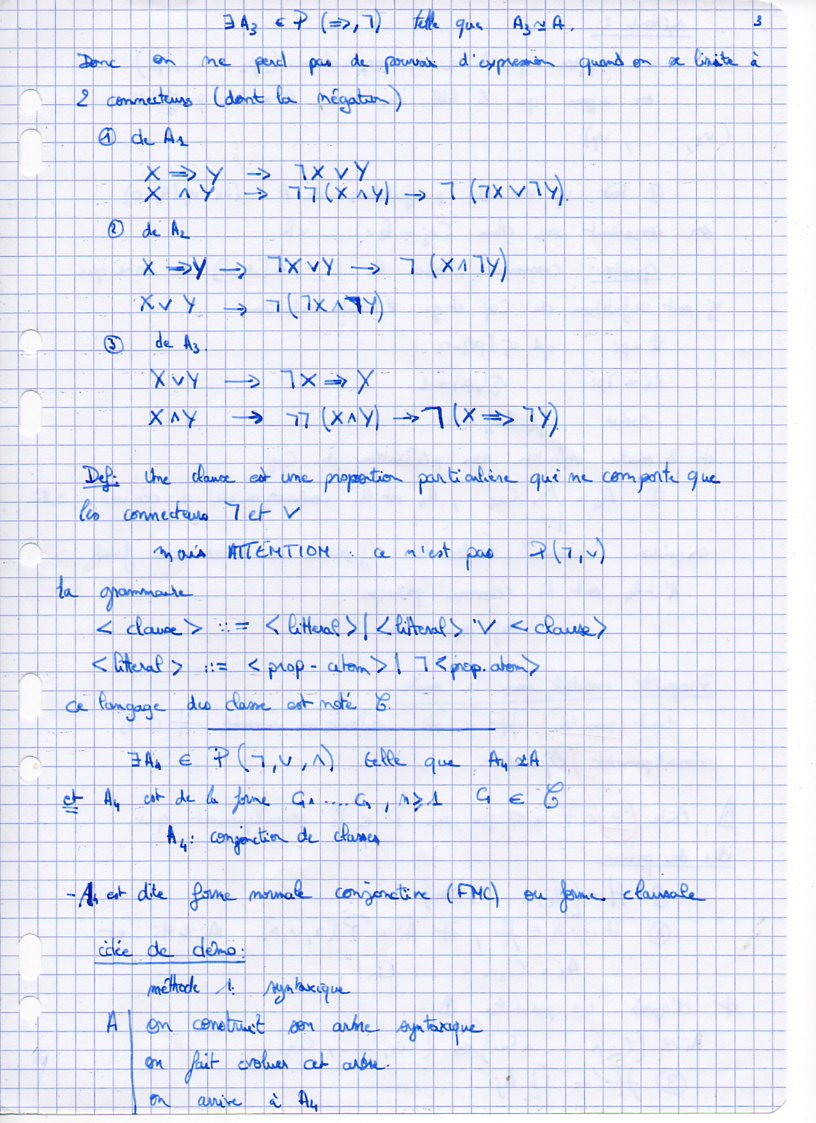 ∃ A₃ ∈ P (⇒, ¬) telle que A₃ ≃ A. 3
Donc on ne perd pas de pouvoir d'expression quand on se limite à
2 connecteurs (dont la négation)
① de A₁
X ⇒ Y → ¬X ∨ Y
X ∧ Y → ¬¬(X ∧ Y) → ¬ (¬X ∨ ¬Y).
② de A₂
X ⇒ Y → ¬X ∨ Y → ¬ (X ∧ ¬Y)
X ∨ Y → ¬(¬X ∧ ¬Y)
③ de A₃.
X ∨ Y → ¬X ⇒ Y
X ∧ Y → ¬¬ (X ∧ Y) → ¬ (X ⇒ ¬Y)
Def: Une clause est une proposition particulière qui ne comporte que
les connecteurs ¬ et ∨
mais ATTENTION : ce n'est pas P(¬, ∨)
la grammaire
< clause > ::= < litteral > | < litteral > ∨ < clause >
< litteral > ::= < prop-atom > | ¬ < prop.atom >
ce langage des classe est noté C.
∃ A₄ ∈ P (¬, ∨, ∧) telle que A₄ ≃ A
et A₄ est de la forme C₁ .... Cₙ , n ≥ 1 Cᵢ ∈ C
A₄ : conjonction de classes
- A₄ est dite forme normale conjonctive (FNC) ou forme clausale
idée de démo :
méthode 1: syntaxique
A | on construit son arbre syntaxique
on fait evoluer cet arbre.
on arrive à A₄